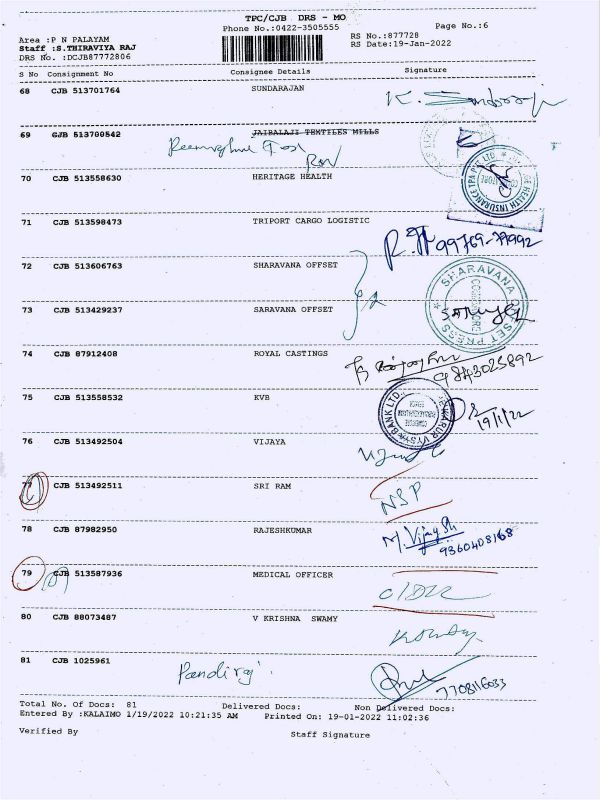 TPC/CJB DRS - MO
Phone No.:0422-3505555
Page No.:6
Area :P N PALAYAM
Staff :S.THIRAVIYA RAJ
DRS No. :DCJB87772806
RS No.:877728
RS Date:19-Jan-2022
S No Consignment No Consignee Details Signature
68 CJB 513701764 SUNDARAJAN
K.
69 CJB 513700542 JAIBALAJI TEXTILES MILLS
70 CJB 513558630 HERITAGE HEALTH
HEALTH INSURANCE TPA PVT. LTD
71 CJB 513598473 TRIPORT CARGO LOGISTIC
99769-79992
72 CJB 513606763 SHARAVANA OFFSET
SHARAVANA OFFSET PRESS
73 CJB 513429237 SARAVANA OFFSET
74 CJB 87912408 ROYAL CASTINGS
9843025892
75 CJB 513558532 KVB
VYSYA BANK LTD.
19/1/22
76 CJB 513492504 VIJAYA
77 CJB 513492511 SRI RAM
NSP
78 CJB 87982950 RAJESHKUMAR
M. Vijay
9360408168
79 CJB 513587936 MEDICAL OFFICER
80 CJB 88073487 V KRISHNA SWAMY
81 CJB 1025961
Pandiraj
7708116033
Total No. Of Docs: 81 Delivered Docs: Non Delivered Docs:
Entered By :KALAIMO 1/19/2022 10:21:35 AM Printed On: 19-01-2022 11:02:36
Verified By Staff Signature